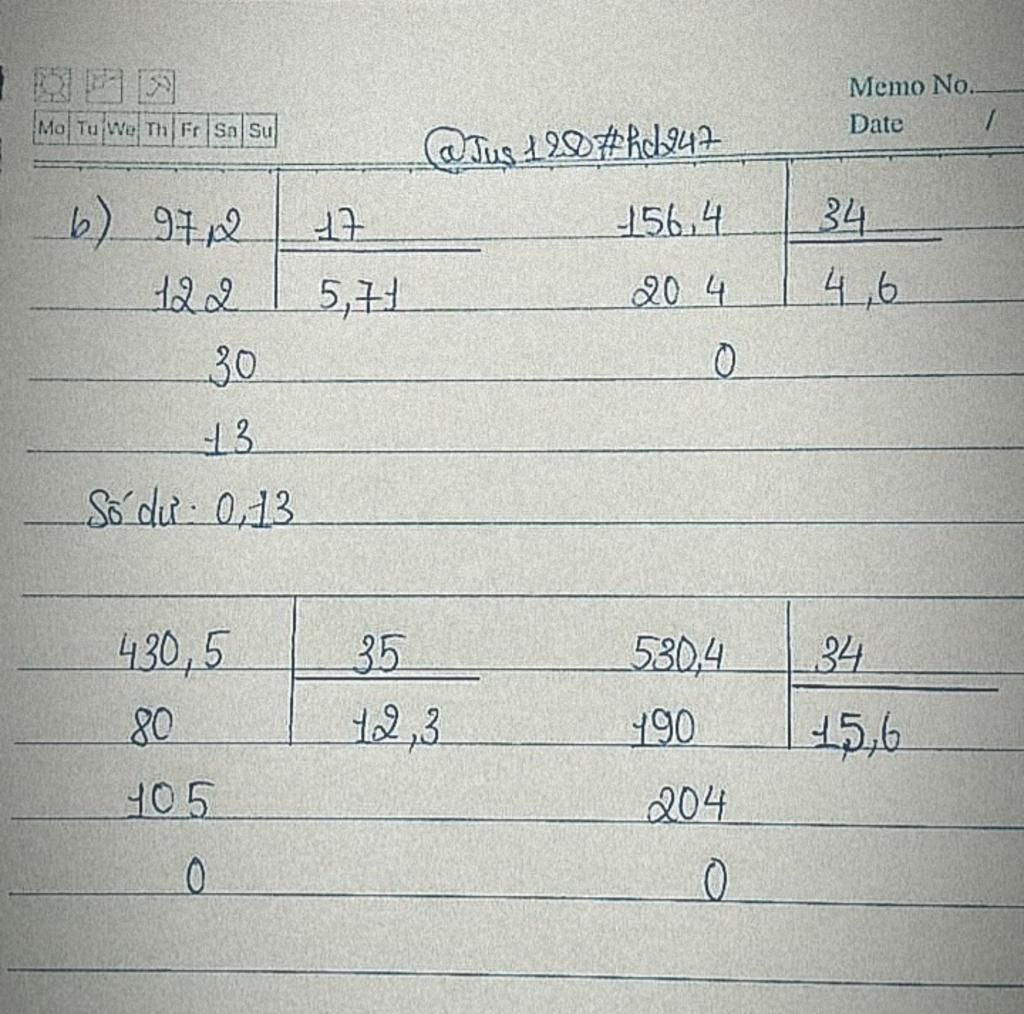 Memo No.
Mo Tu We Th Fr Sa Su
Date /
@Jus1280#hd247
b) 97,2 17 156,4 34
12 2 5,71 20 4 4,6
30 0
13
Số dư: 0,13
430,5 35 530,4 34
80 12,3 190 15,6
10 5 204
0 0